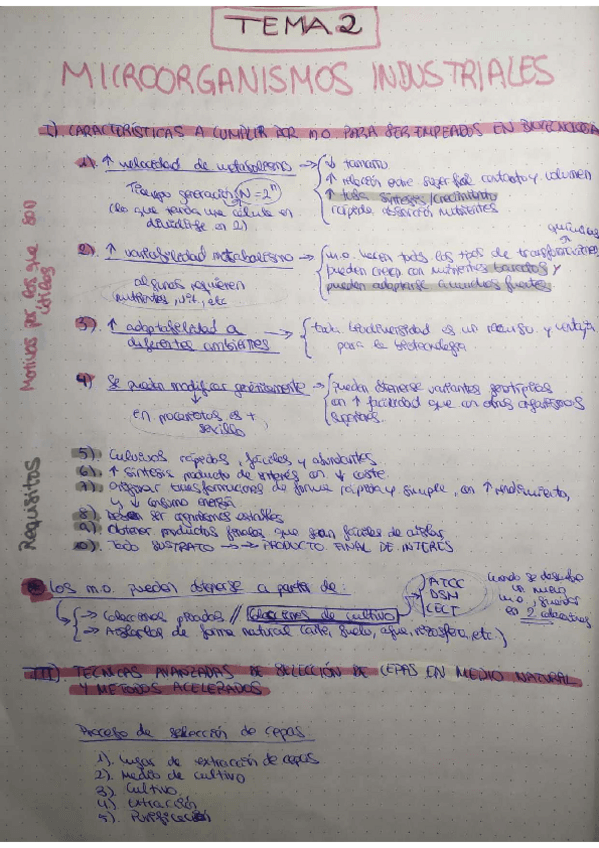 TEMA 2
MICROORGANISMOS INDUSTRIALES
I) CARACTERÍSTICAS A CUMPLIR POR M.O. PARA SER EMPEADOS EN BIOTECNOLOGÍA
Motivos por los que son útiles
1) ↑ velocidad de metabolismo → ↓ tamaño
Tiempo generación N = 2ⁿ
(lo que tarda una célula en dividirse en 2)
↑ relación entre superficie contacto y volumen
↑ tasa síntesis/crecimiento
rápida absorción nutrientes
2) ↑ variabilidad metabolismo → m.o. hacen todos los tipos de transformaciones químicas
algunos requieren
nutrientes, etc
pueden crecer con nutrientes baratos y
pueden adaptarse a muchas fuentes
3) ↑ adaptabilidad a
diferentes ambientes → toda biodiversidad es un recurso y ventaja
para la biotecnología
4) Se pueden modificar genéticamente → pueden obtenerse variantes genotípicas
en procariotas es +
sencillo
con ↑ facilidad que en otros organismos
superiores.
Requisitos
5) Cultivos rápidos, fáciles y abundantes
6) ↑ síntesis producto de interés con ↓ coste
7) transformaciones de forma rápida y simple, con ↑ rendimiento,
y ↓ consumo energía
8) Deben ser organismos estables
9) Obtener productos finales que sean fáciles de aislar
10) TODO SUSTRATO → → PRODUCTO FINAL DE INTERÉS
Los m.o. pueden obtenerse a partir de:
→ Colecciones privadas // Colecciones de cultivo → ATCC
DSM
CECT
Cuando se descubre
un nuevo
m.o,
en 2 colecciones
→ Aislarlos de forma natural (aire, suelo, agua, rizosfera, etc)
III) TÉCNICAS AVANZADAS DE SELECCIÓN DE CEPAS EN MEDIO NATURAL
Y MÉTODOS ACELERADOS
Proceso de selección de cepas:
1). Lugar de extracción de cepas
2). Medio de cultivo
3). Cultivo
4) extracción
5). Purificación